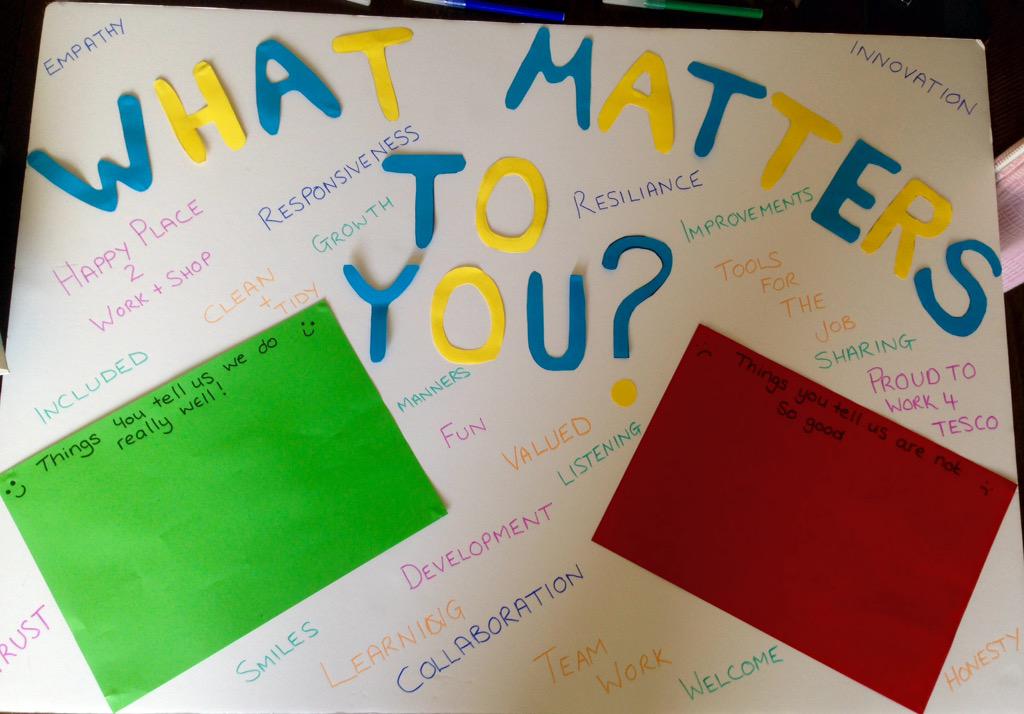 EMPATHY
INNOVATION
WHAT MATTERS
TO
YOU?
RESPONSIVENESS
GROWTH
RESILIANCE
IMPROVEMENTS
HAPPY PLACE
2
WORK + SHOP
CLEAN
+
TIDY
TOOLS
FOR
THE
JOB
SHARING
PROUD TO
WORK 4
TESCO
INCLUDED
MANNERS
FUN
VALUED
LISTENING
Things you tell us we do
really well!
Things you tell us are not
so good
DEVELOPMENT
RUST
SMILES
LEARNIDIG
COLLABORATION
TEAM
WORK
WELCOME
HONESTY